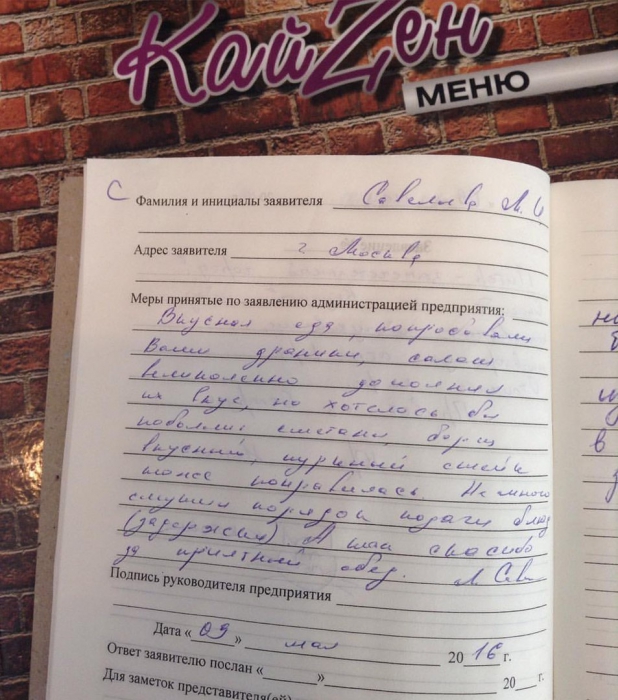 КайZен
МЕНЮ
С
Фамилия и инициалы заявителя Савельева М. И
Адрес заявителя г. Москва
Меры принятые по заявлению администрацией предприятия:
Вкусная еда, попробовали
Ваши драники, салат
великолепно дополнял
их вкус, но хотелось бы
побольше сметаны, борщ
вкусный, куриный стейк
тоже понравилась. Немного
смутил порядок подачи блюд
(задержки) А так спасибо
за приятный обед.
Подпись руководителя предприятия
Дата « 09 » мая 20 16 г.
Ответ заявителю послан « » 20 г.
Для заметок представителя(ей)